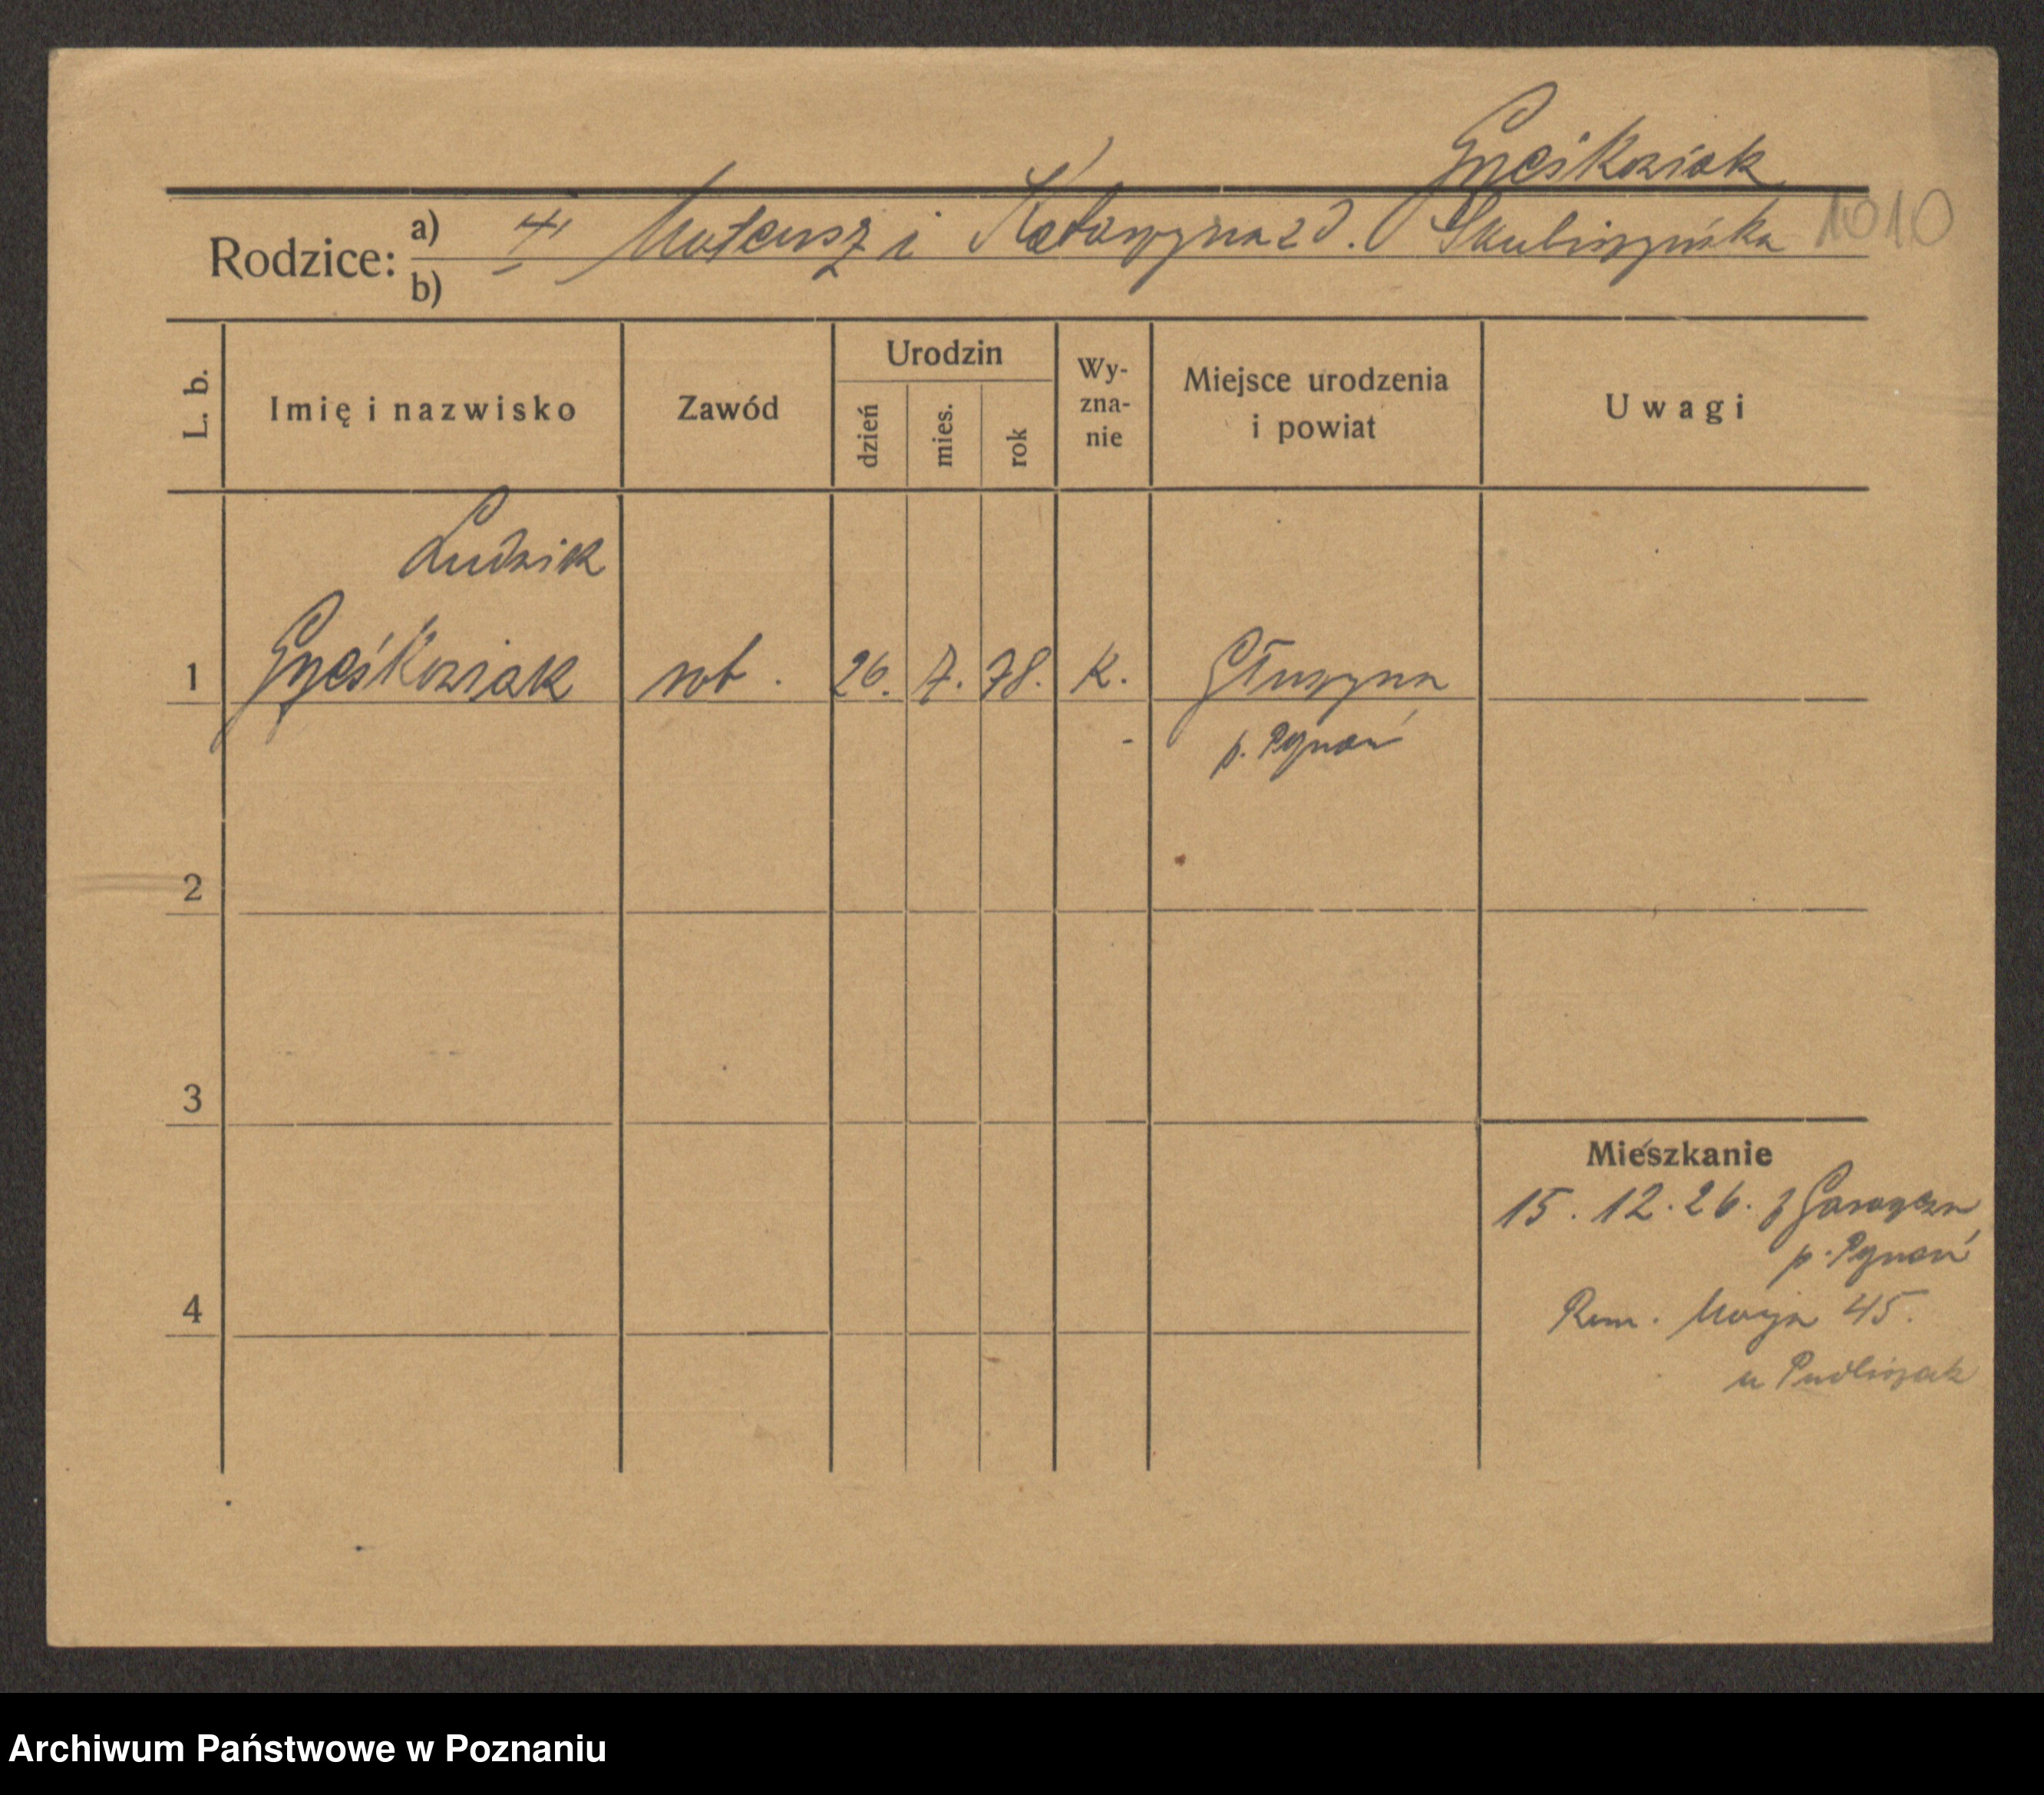 Grześkowiak
Rodzice: a) Mateusz i Katarzyna z d. Skubiszyńska 1010
b)
L. b. Imię i nazwisko Zawód Urodzin dzień mies. rok Wy-zna-nie Miejsce urodzenia i powiat Uwagi
Ludwik
1 Grześkowiak rob. 26. 7. 78. k. Głuszyna
p. Poznań
2
3
Mieszkanie
15. 12. 26. z
p. Poznań
4
Maja 45.
u Pudliszak
Archiwum Państwowe w Poznaniu